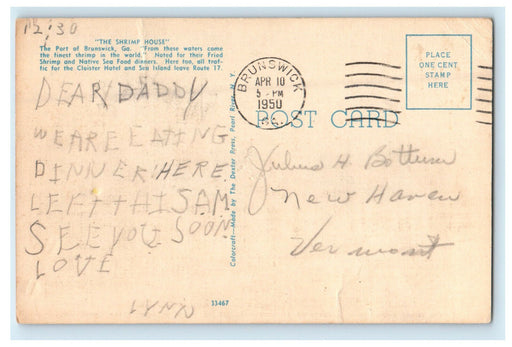 12:30
"THE SHRIMP HOUSE"
The Port of Brunswick, Ga. "From these waters come
the finest shrimp in the world." Noted for their Fried
Shrimp and Native Sea Food dinners. Here too, all traf-
fic for the Cloister Hotel and Sea Island leave Route 17.
DEAR DADDY
WE ARE EATING
DINNER HERE
LEFT THIS AM
SEE YOU SOON
LOVE
LYNN
Colorcraft—Made by The Dexter Press, Pearl River, N. Y.
33467
BRUNSWICK
APR 10
5 - PM
1950
GA.
POST CARD
PLACE
ONE CENT
STAMP
HERE
Julius H. Bottum
New Haven
Vermont